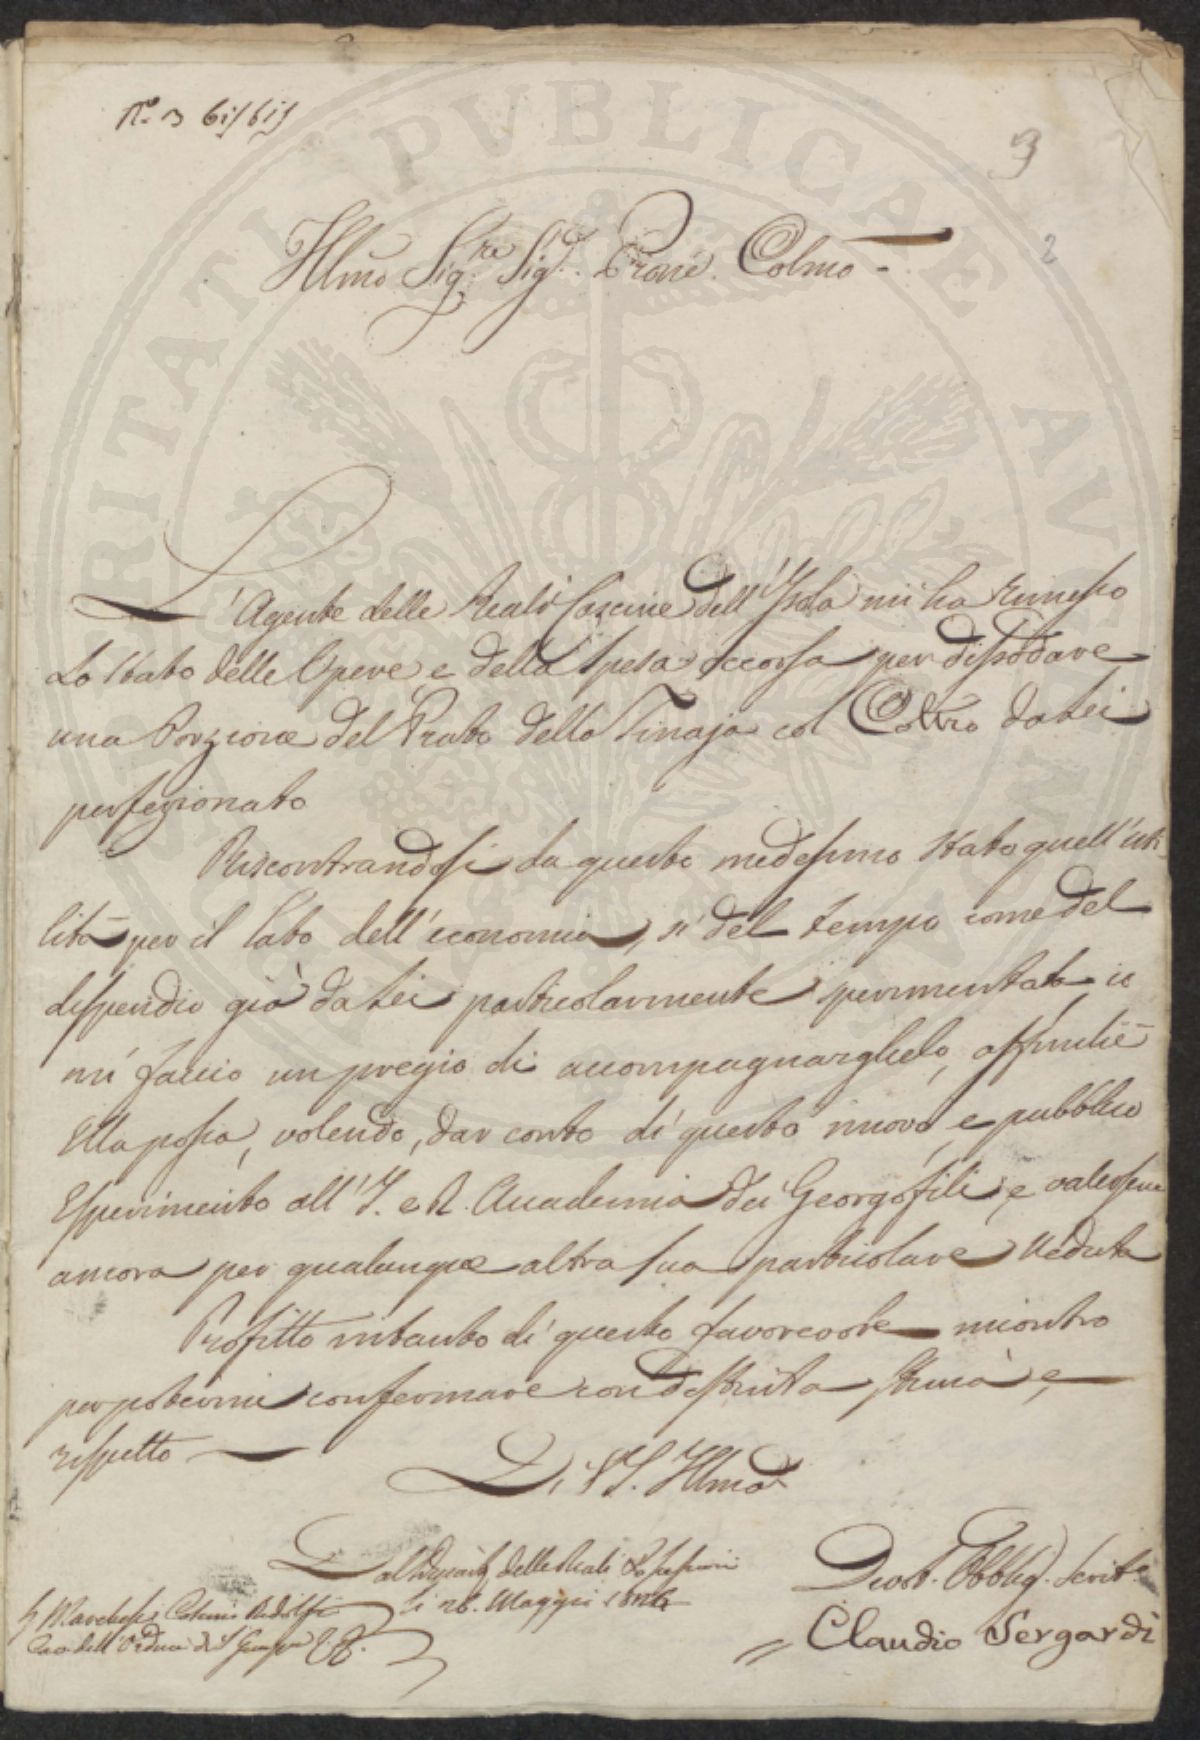 N.º 3 bis/bis
3
2
Illmo Sig.re Sig.r Prone Colmo
L'Agente delle Reali Cascine dell'Isola mi ha rimesso
Lo Stato delle Opere, e della Spesa occorsa per dissodare
una Porzione del Prato della Tinaja col Coltro da Lei
perfezionato
Riscontrandosi da questo medesimo Stato quell'uti-
lità per il lato dell'economia, sì del tempo come del
dispendio già da Lei particolarmente sperimentata io
mi faccio un pregio di accompagnarglielo, affinchè
Ella possa, volendo, dar conto di questo nuovo, e pubblico
Esperimento all'I. e R. Accademia dei Georgofili, e valersene
ancora per qualunque altra sua particolare Veduta
Profitto intanto di questo favorevole incontro
per potermi confermare con distinta stima e,
rispetto
Di V.S. Illma
Dal Dipart. delle Reali Possessioni
Li 26. Maggio 1824
Devot. Obblig. Servit.e
Claudio Sergardi
S. Marchese Cosimo Ridolfi
Cav. dell'Ordine di S. Giuseppe
BVRITATI PVBLICAE AVGVM